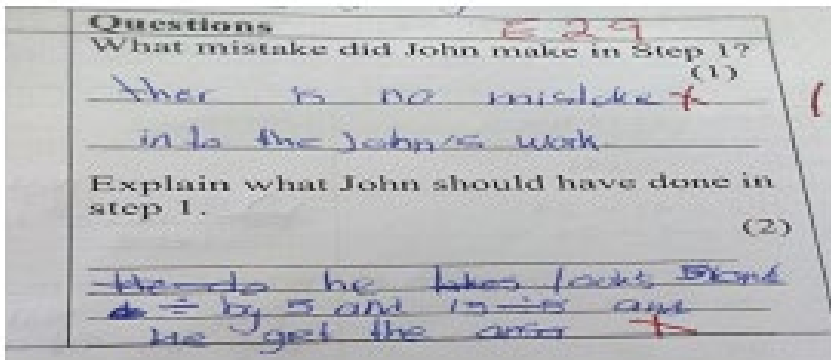 Questions E29
What mistake did John make in Step 1?
(1)
ther is no mistake
in to the John's work
Explain what John should have done in
step 1.
(2)
he takes
÷ by 5 and 15÷5 and
He get the